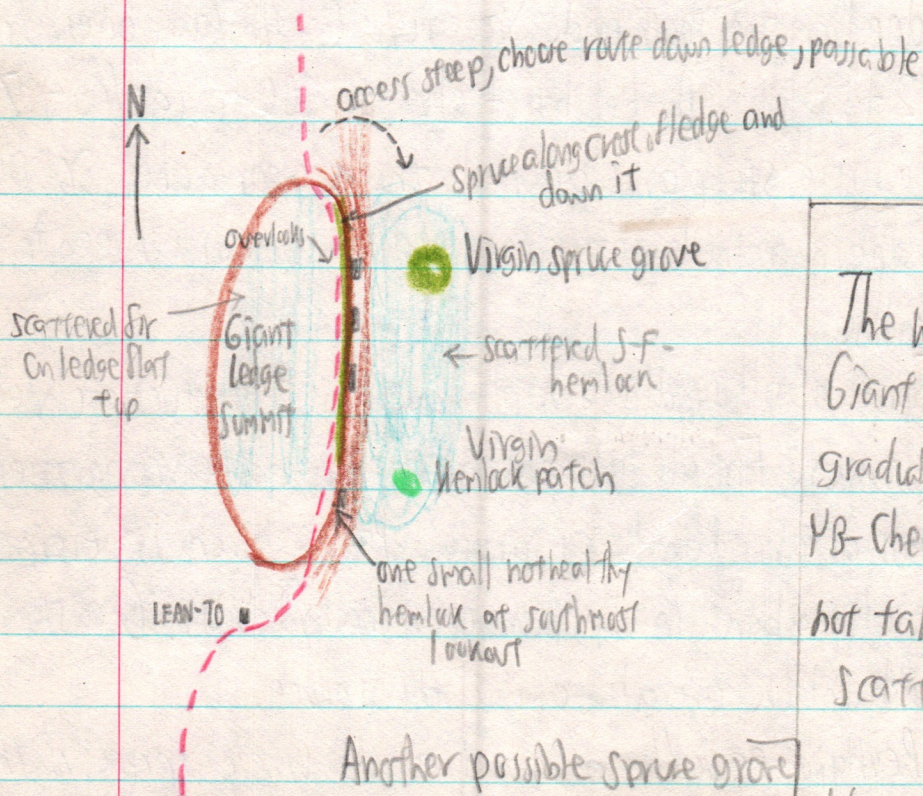 access steep, choose route down ledge, passable
N
spruce along crest of ledge and
down it
overlooks
Virgin spruce grove
scattered fir
on ledge flat
top
Giant
Ledge
Summit
scattered S-F-
hemlock
Virgin
Hemlock patch
one small not healthy
hemlock at southmost
lookout
LEAN-TO
Another possible spruce grove
The
Giant
gradual
YB-Che
not tal
scatt